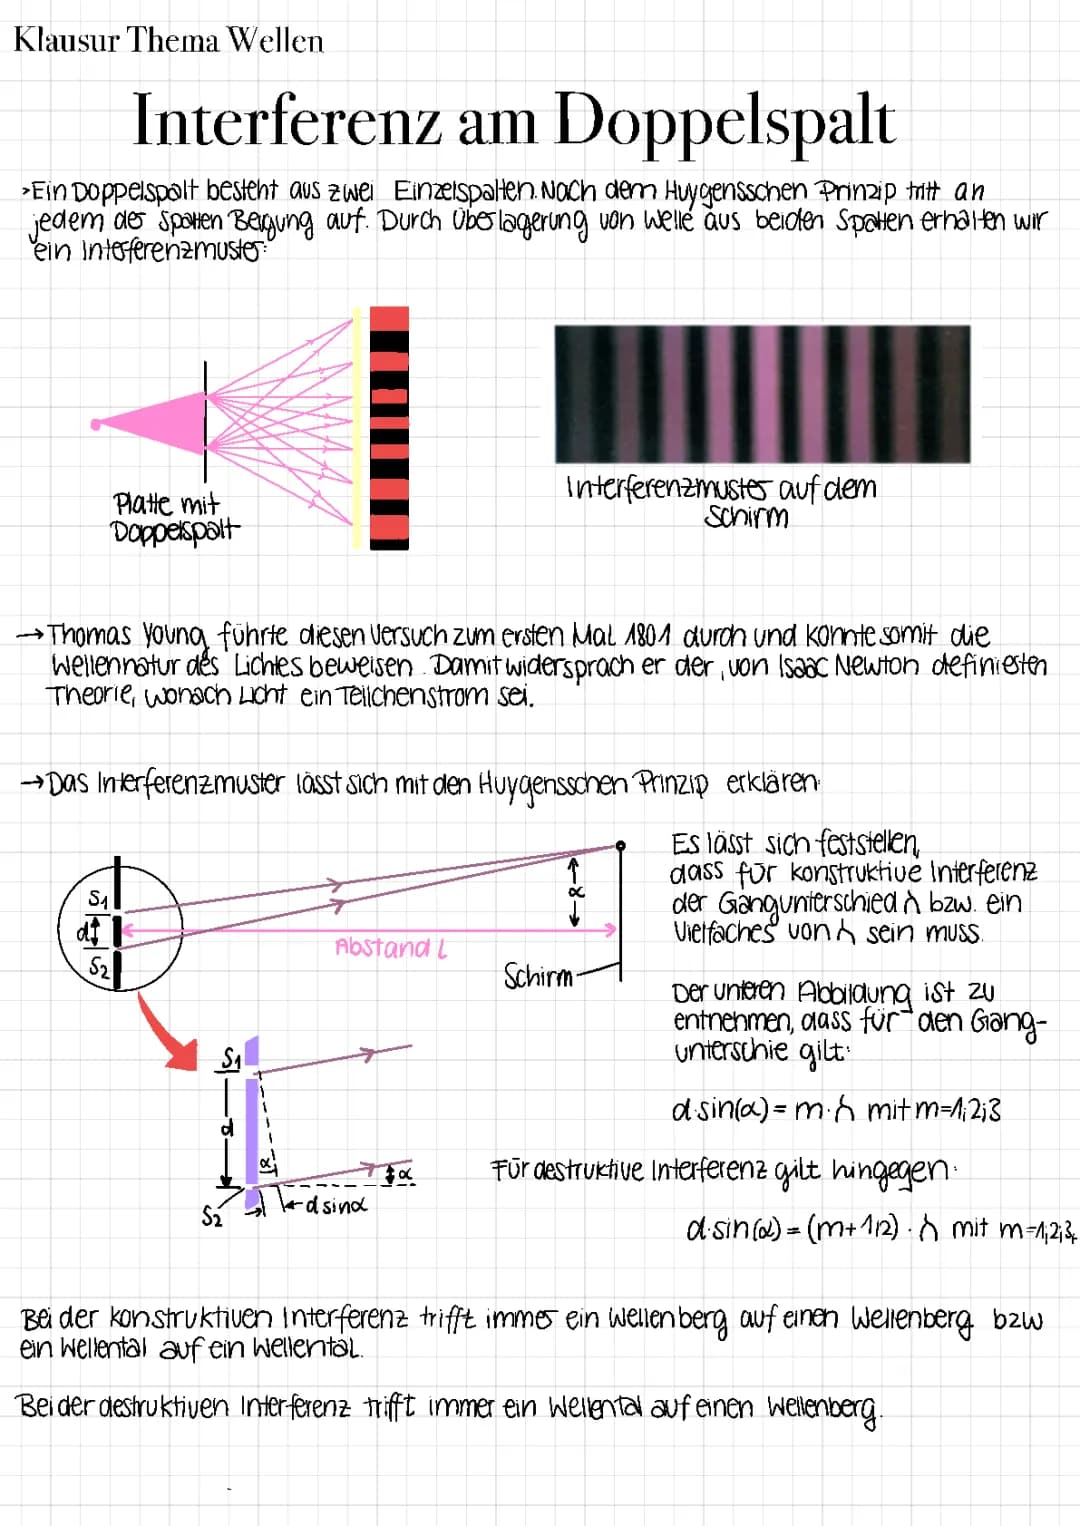 Klausur Thema Wellen
Interferenz am Doppelspalt
>Ein Doppelspalt besteht aus zwei Einzelspalten. Nach dem Huygensschen Prinzip tritt an
jedem der Spalten Beugung auf. Durch Überlagerung von Welle aus beiden Spalten erhalten wir
ein Interferenzmuster:
Platte mit
Doppelspalt
Interferenzmuster auf dem
Schirm
→Thomas Young führte diesen Versuch zum ersten Mal 1801 durch und konnte somit die
Wellennatur des Lichtes beweisen. Damit widersprach er der, von Isaac Newton definierten
Theorie, wonach Licht ein Teilchenstrom sei.
→Das Interferenzmuster lässt sich mit den Huygensschen Prinzip erklären:
S1
d
S2
Abstand L
α
Schirm
Es lässt sich feststellen,
dass für konstruktive Interferenz
der Gangunterschied λ bzw. ein
Vielfaches von λ sein muss.
Der unteren Abbildung ist zu
entnehmen, dass für den Gang-
unterschie gilt:
d·sin(α) = m·λ mit m=1;2;3
S1
d
α
S2
d sinα
α
Für destruktive Interferenz gilt hingegen:
d·sin(α) = (m+1/2)·λ mit m=1;2;3;
Bei der konstruktiven Interferenz trifft immer ein Wellenberg auf einen Wellenberg bzw
ein Wellental auf ein Wellental.
Bei der destruktiven Interferenz trifft immer ein Wellental auf einen Wellenberg.